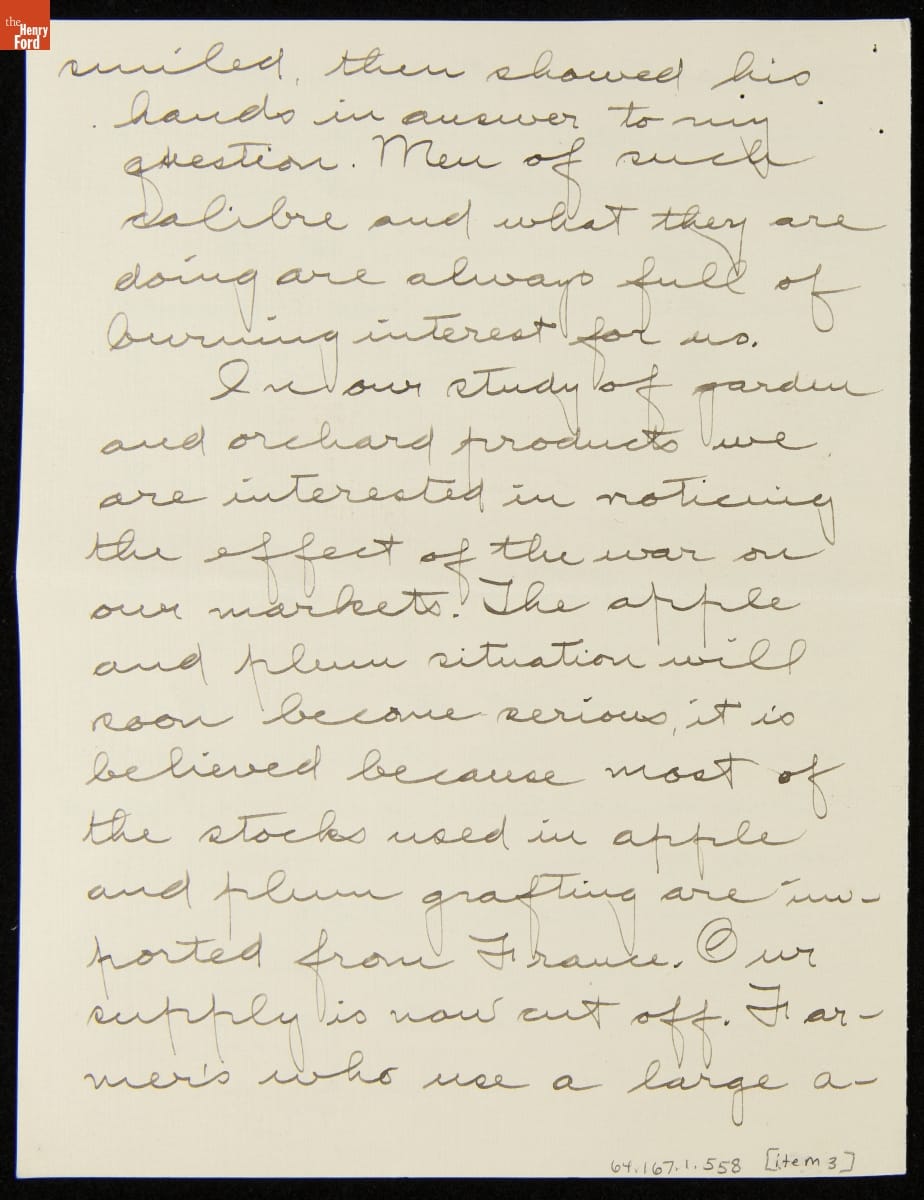 the
Henry
Ford
smiled, then showed his
hands in answer to my
question. Men of such
calibre and what they are
doing are always full of
burning interest for us.
In our study of garden
and orchard products we
are interested in noticing
the effect of the war on
our markets. The apple
and plum situation will
soon become serious, it is
believed because most of
the stocks used in apple
and plum grafting are im-
ported from France. Our
supply is now cut off. Far-
mer's who use a large a-
64.167.1.558 [item 3]